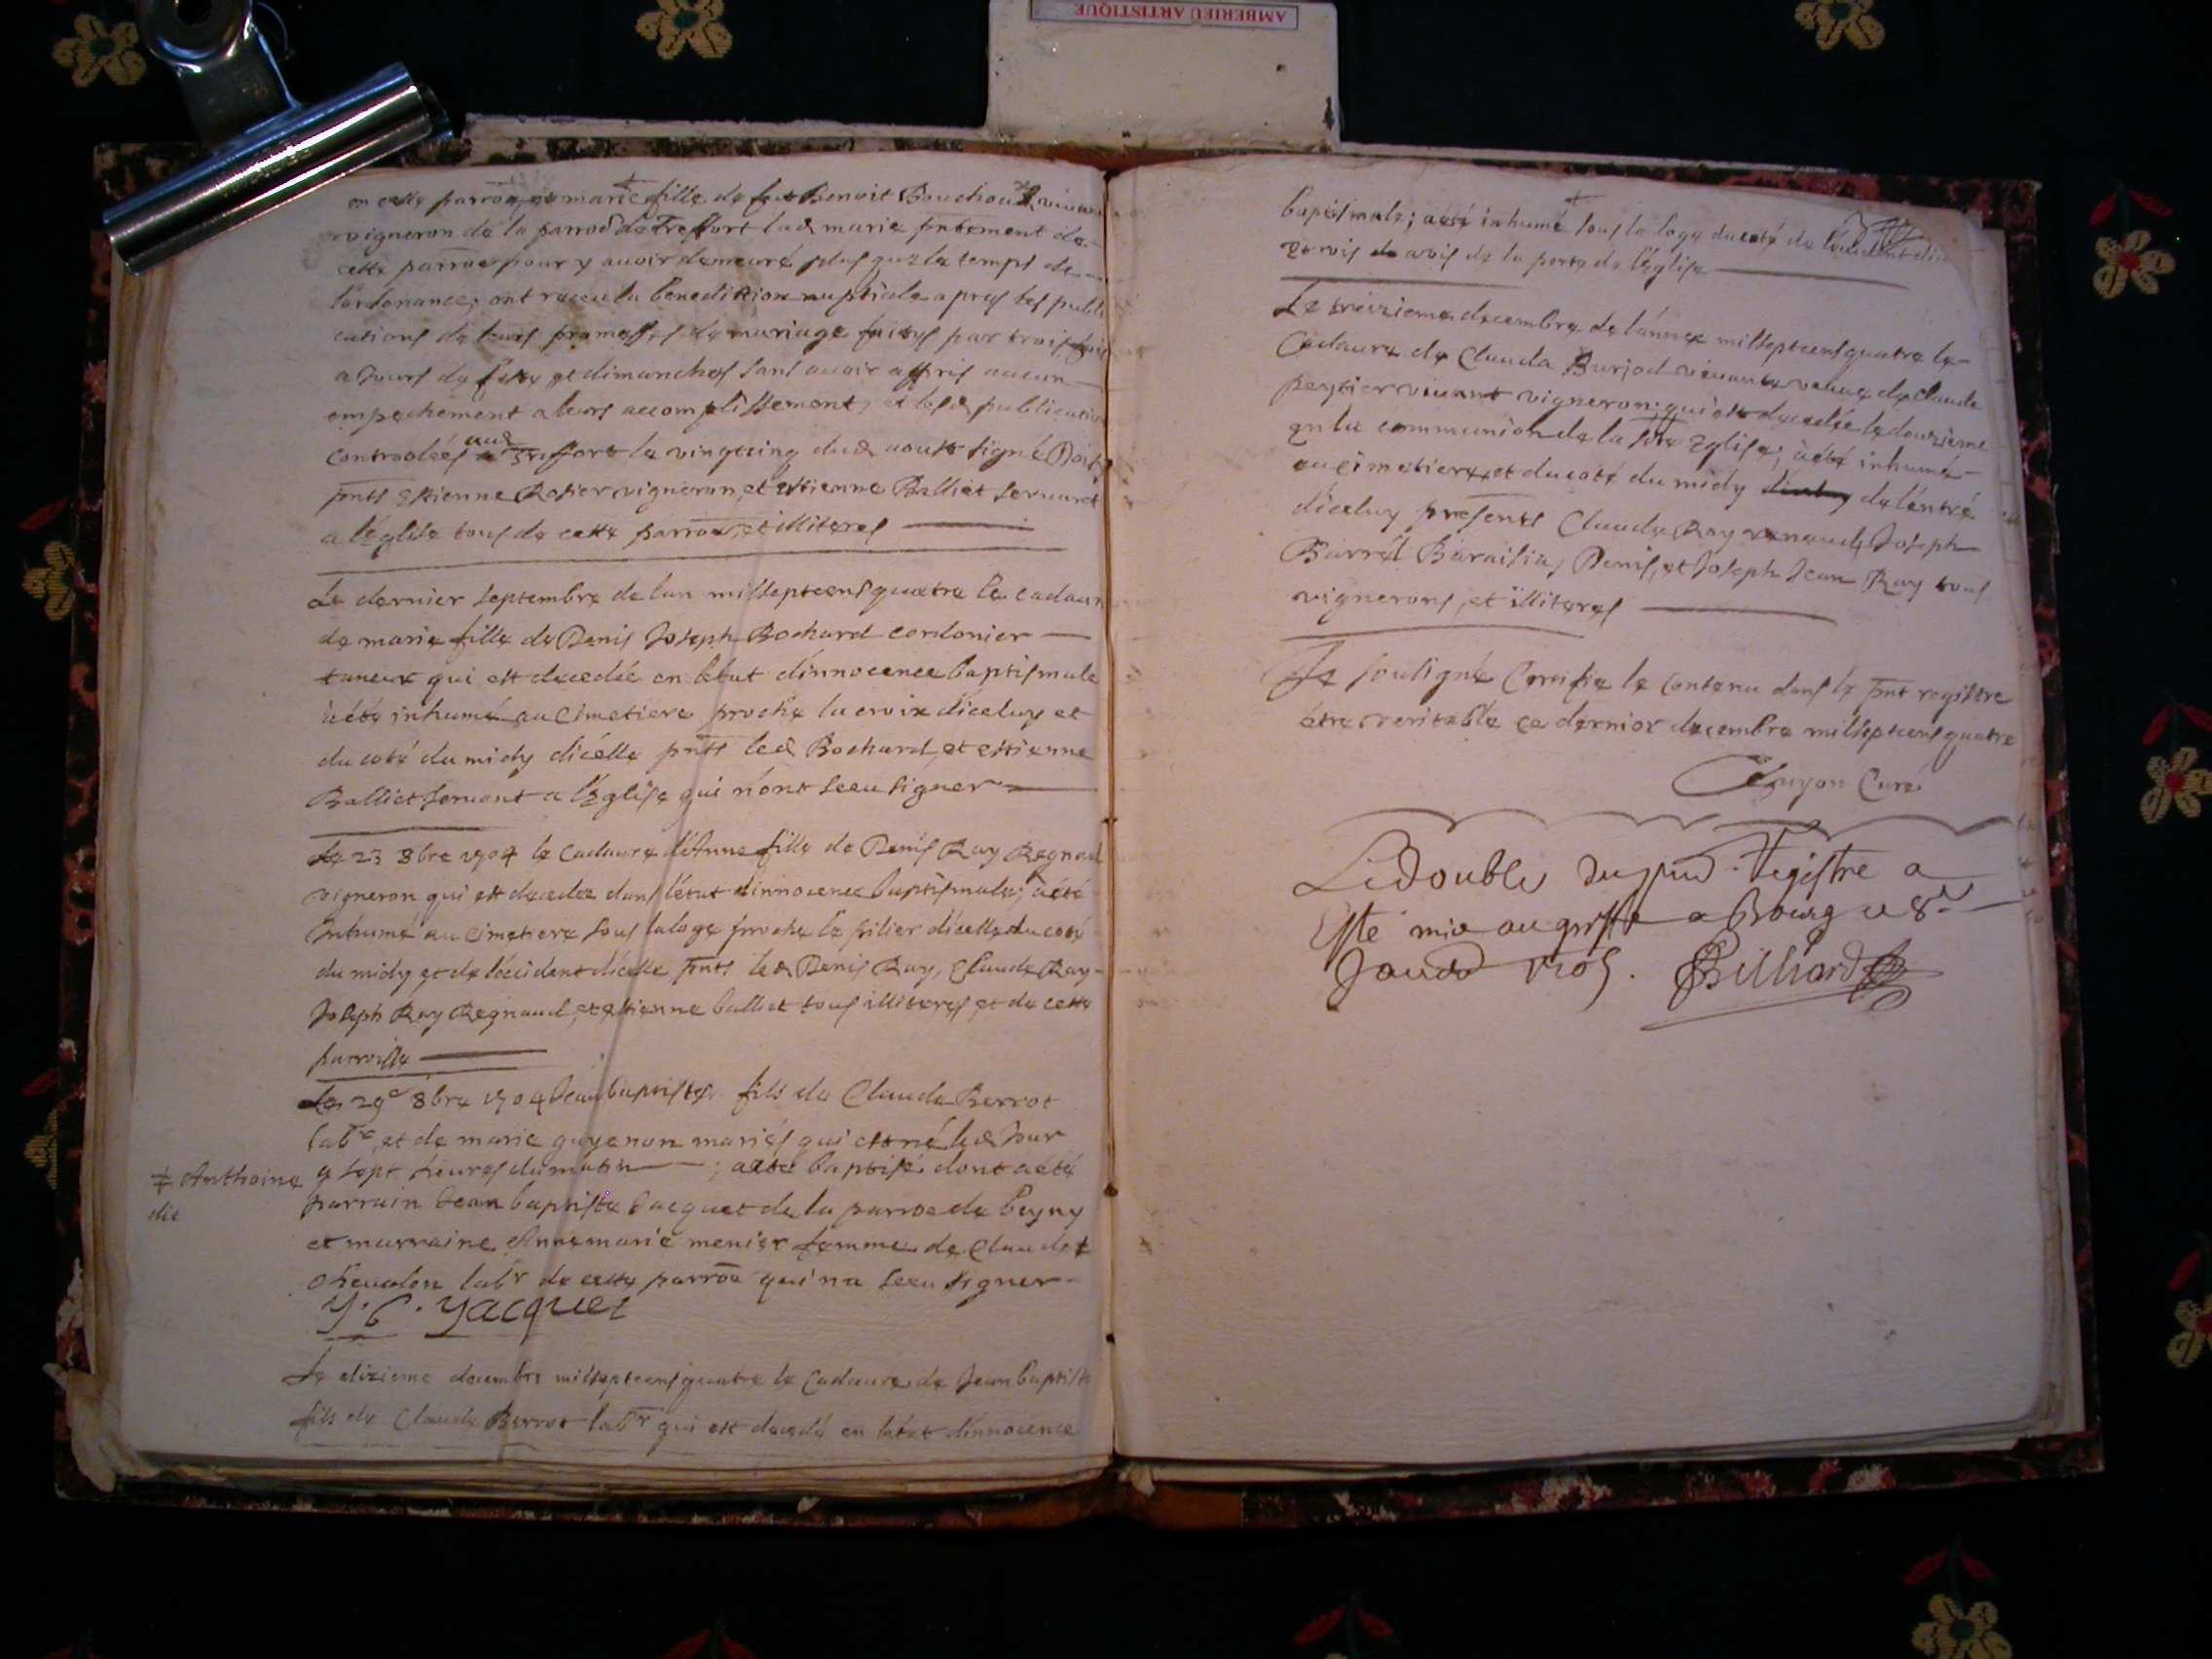 AMBERIEU ARTISTIQUE
en cette parroe, et marie fille de feu Benoit Bouchoux vivant
vigneron de la parroe de Treffort lad marie pntement de
cette parroe pour y avoir demeuré plus que le temps de
l'ordonance; ont receu la benediction nuptiale apres les publi
cations de leurs promesses de mariage faites par trois fois
a Jours de feste et dimanches sans avoir appris aucun
empechement a leurs accomplissement, et lesd publication
controolées aud Treffort le vingt cinq dud aoust signé
pnts Estienne Rosier vigneron, et estienne Balliet servant
a l'église tous de cette parroe, et illiteres
Le dernier septembre de lan mil septcens quatre le cadavre
de marie fille de Denis Joseph Bochard cordonier
taneur qui est decedée en letat d'innocence baptismale
a été inhumé au cimetiere proche la croix diceluy et
du coté du midy dicelle pnts led Bochard, et estienne
Balliet servant a l'Eglise qui n'ont sceu signer
Le 23 8bre 1704 le cadavre d'Anne fille de Denis Ray Regnaud
vigneron qui est decedee dans létat dinnocence baptismale; a été
Inhumé au cimetiere sous la loge proche le pilier dicelle du coté
du midy et de loccident dicelle pnts led Denis Ray, Claude Ray
Joseph Ray Regnaud, et estienne balliet tous illiteres et de cette
parroisse
Le 29e 8bre 1704 Jean baptiste fils de Claude Berrot
labr, et de marie guyenon mariés qui est né led Jour
a sept heures du matin; a été baptisé dont a été
≠ Anthoine
dit
parrain Jean baptiste Jacquet de la parroe de
et marraine Anne marie menier femme de Claude
Chevalon labr de cette parroe qui na sceu signer
y. b. yacquet
Le dizieme decembre mil septcens quatre le cadavre de Jean baptiste
fils de Claude Berrot labr qui est decedé en létat d'innocence
baptismale; a été inhumé sous la loge du coté de
et vis a vis de la porte de l'église
Le treizieme decembre de l'année mil septcens quatre le
Cadavre de Clauda Burjod vivante veuve de Claude
peysier vivant vigneron; qui est decedée le douzieme
en la communion de la ste Eglise; a été inhumé
au cimetiere, et du coté du midy de l'entré
diceluy presents Claude Ray renaud, Joseph
Barrel Denis, et Joseph Jean Ray tous
vignerons, et illiteres
Je sousigné Certifie le contenu dans le pnt registre
étre veritable ce dernier decembre mil septcens quatre
Guyon Curé
Le double du pnt Registre a
Esté mis au greffe a Bourg ce 8e
1705. Billiard